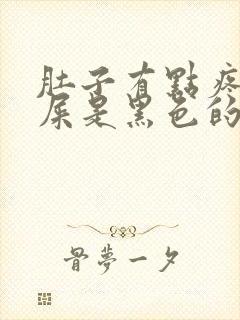 肚子有點疼
屎是黑色的
骨夢一夕